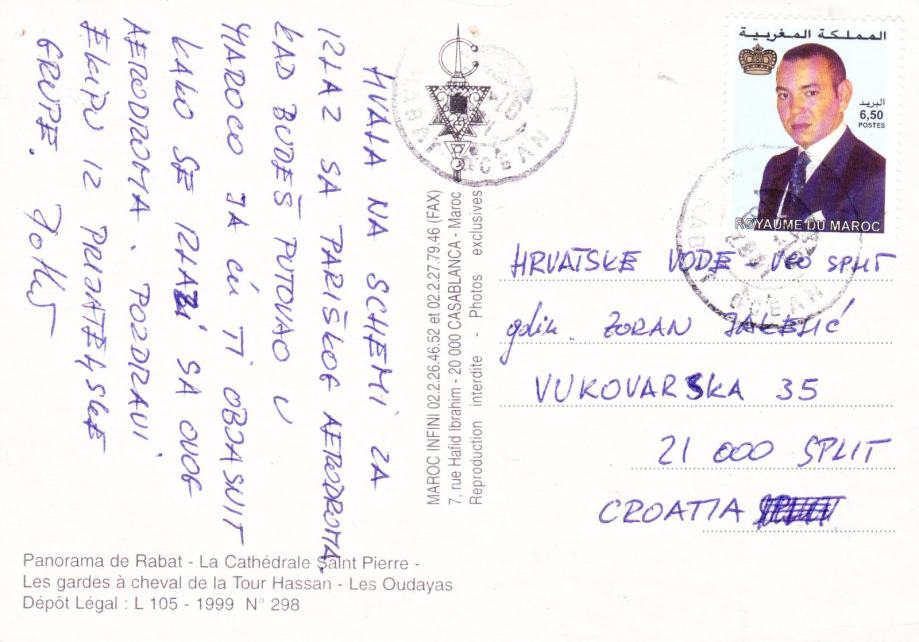 HVALA NA SCHEMI ZA
IZLAZ SA PARIŠKOG AERODROMA.
KAD BUDEŠ PUTOVAO U
MAROCO JA ĆU TI OBJASNIT
KAKO SE IZLAZI SA OVOG
AERODROMA. POZDRAVI
EKIPU IZ PRIJATELJSKE
GRUPE.
MAROC INFINI 02.2.26.46.52 et 02.2.27.79.46 (FAX)
7, rue Hafid Ibrahim - 20 000 CASABLANCA - Maroc
Reproduction interdite - Photos exclusives
المملكة المغربية
البريد
6,50
POSTES
ROYAUME DU MAROC
RABAT OCEAN
RABAT OCEAN
HRVATSKE VODE - VGO SPLIT
gdin. ZORAN JAKELIĆ
VUKOVARSKA 35
21 000 SPLIT
CROATIA
Panorama de Rabat - La Cathédrale Saint Pierre -
Les gardes à cheval de la Tour Hassan - Les Oudayas
Dépôt Légal : L 105 - 1999 N° 298